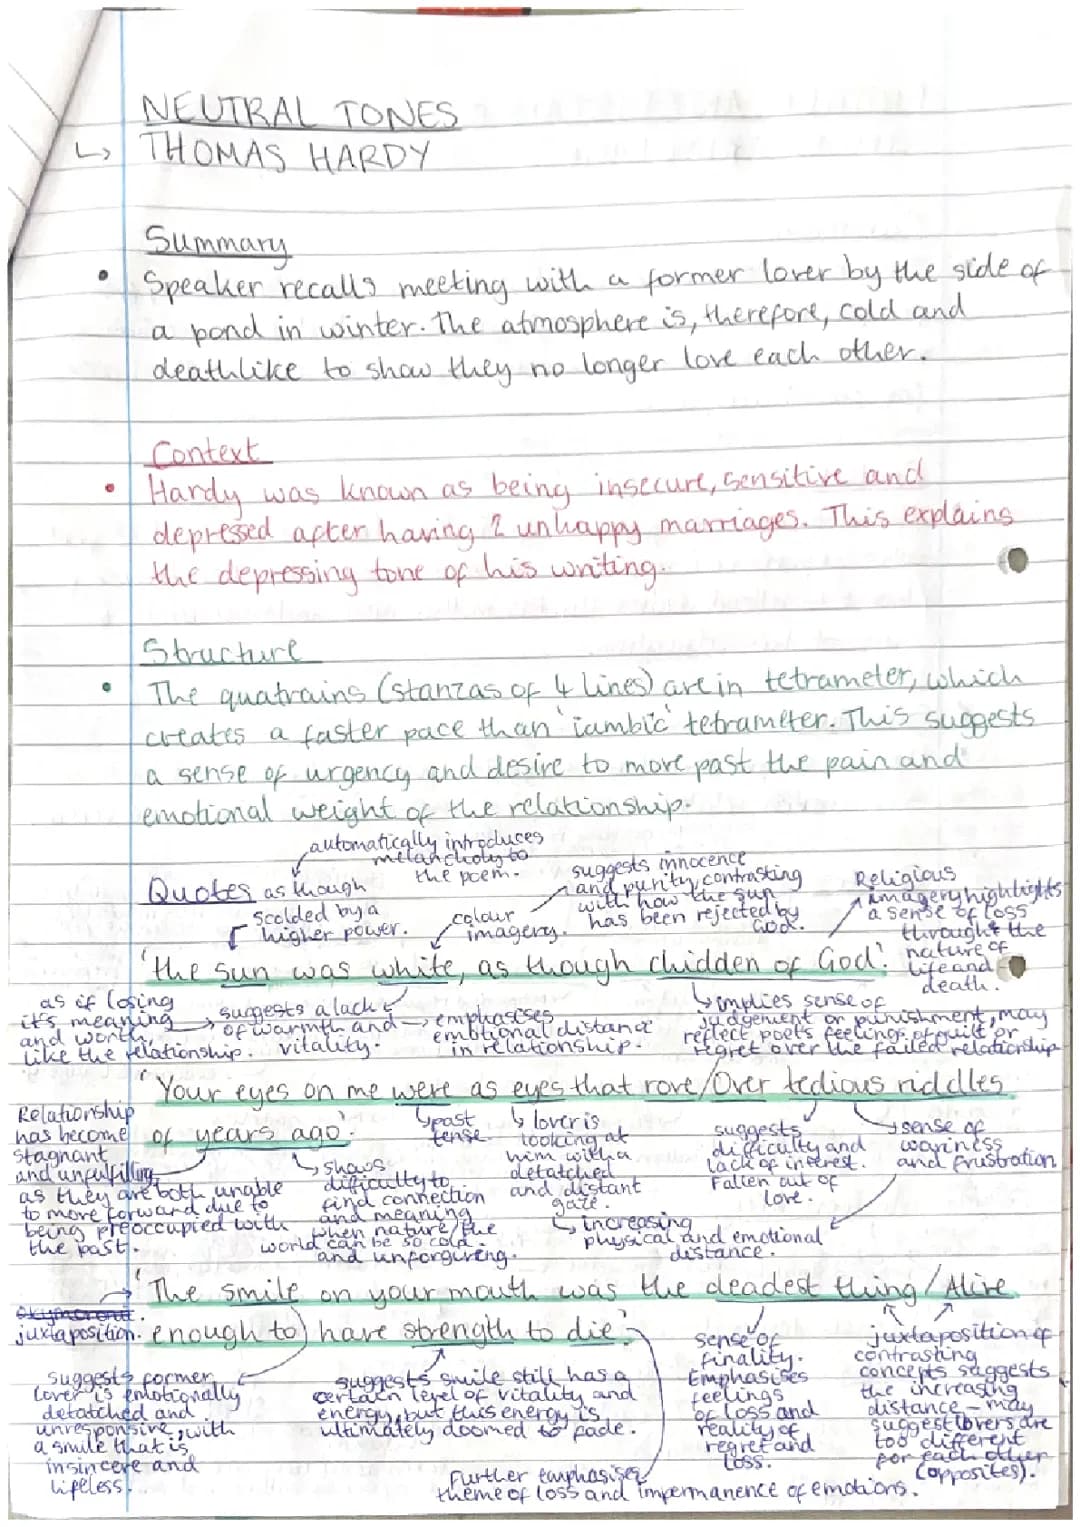 NEUTRAL TONES
↳ THOMAS HARDY
Summary
• Speaker recalls meeting with a former lover by the side of
a pond in winter. The atmosphere is, therefore, cold and
deathlike to show they no longer love each other.
Context
• Hardy was known as being insecure, sensitive and
depressed after having 2 unhappy marriages. This explains
the depressing tone of his writing.
Structure
• The quatrains (stanzas of 4 lines) are in tetrameter, which
creates a faster pace than 'iambic' tetrameter. This suggests
a sense of urgency and desire to move past the pain and
emotional weight of the relationship.
automatically introduces
melancholy to
the poem.
Quotes
as though
scolded by a
higher power.
colour
imagery.
suggests innocence
and purity, contrasting
with how the sun
has been rejected by
God.
Religious
imagery highlights
a sense of loss
through the
nature of
life and
death.
'the sun was white, as though chidden of God'
as if losing
it's meaning
and worth,
like the relationship.
suggests a lack
of warmth and
vitality.
emphasises
emotional distance
in relationship.
implies sense of
judgement or punishment, may
reflect poets feelings of guilt or
regret over the failed relationship
'Your eyes on me were as eyes that rove/Over tedious riddles
of years ago'
Relationship
has become
stagnant
and unfulfilling
as they are both unable
to move forward due to
being preoccupied with
the past.
shows
difficulty to
find connection
and meaning
when nature/the
world can be so cold
and unforgiving.
past
tense
lover is
looking at
him with a
detatched
and distant
gaze.
increasing
physical and emotional
distance.
suggests
difficulty and
lack of interest.
Fallen out of
love.
sense of
wariness
and frustration
'The smile on your mouth was the deadest thing/Alive
enough to have strength to die'
juxtaposition.
suggests former
lover is emotionally
detatched and
unresponsive, with
a smile that is
insincere and
lifeless.
suggests smile still has a
certain level of vitality and
energy, but this energy is
ultimately doomed to fade.
Further emphasises
theme of loss and impermanence of emotions.
sense of
finality.
Emphasises
feelings
of loss and
reality of
regret and
loss.
juxtaposition of
contrasting
concepts suggests
the increasing
distance - may
suggest lovers are
too different
for each other
(opposites).